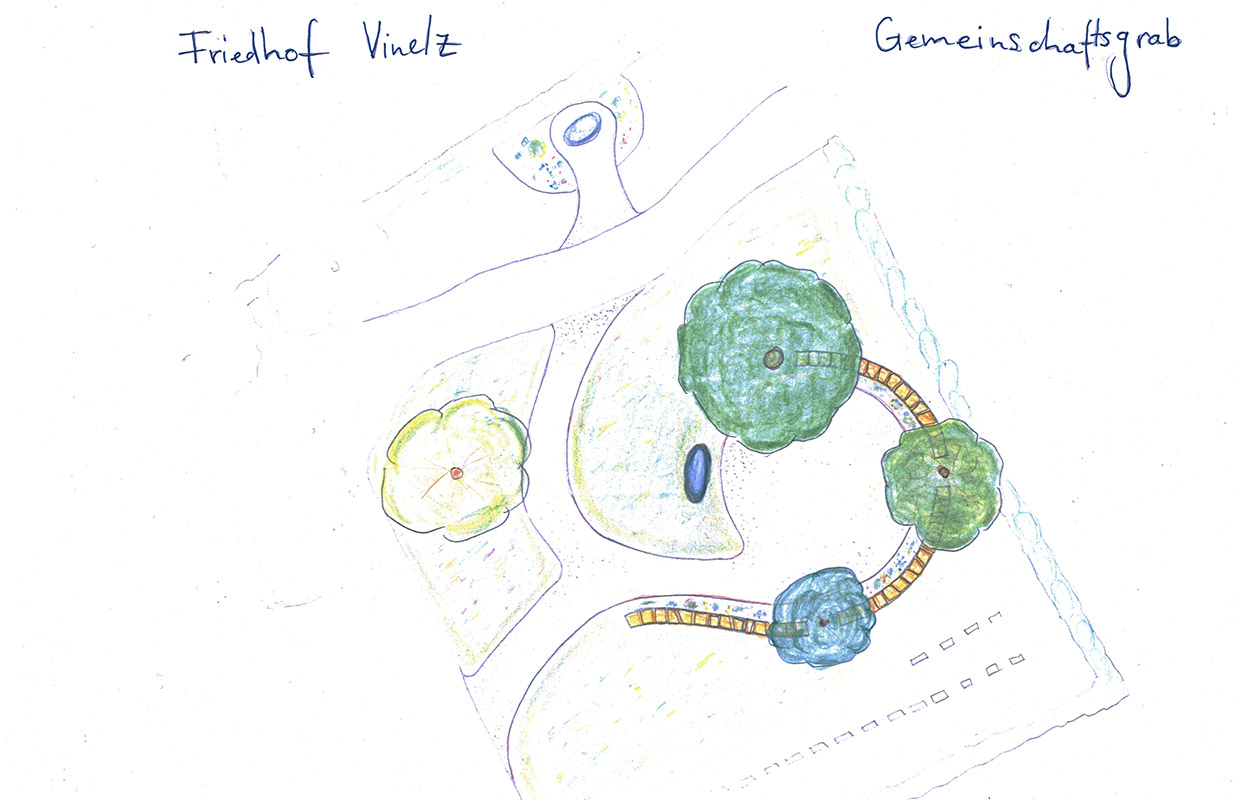 Friedhof Vinelz
Gemeinschaftsgrab